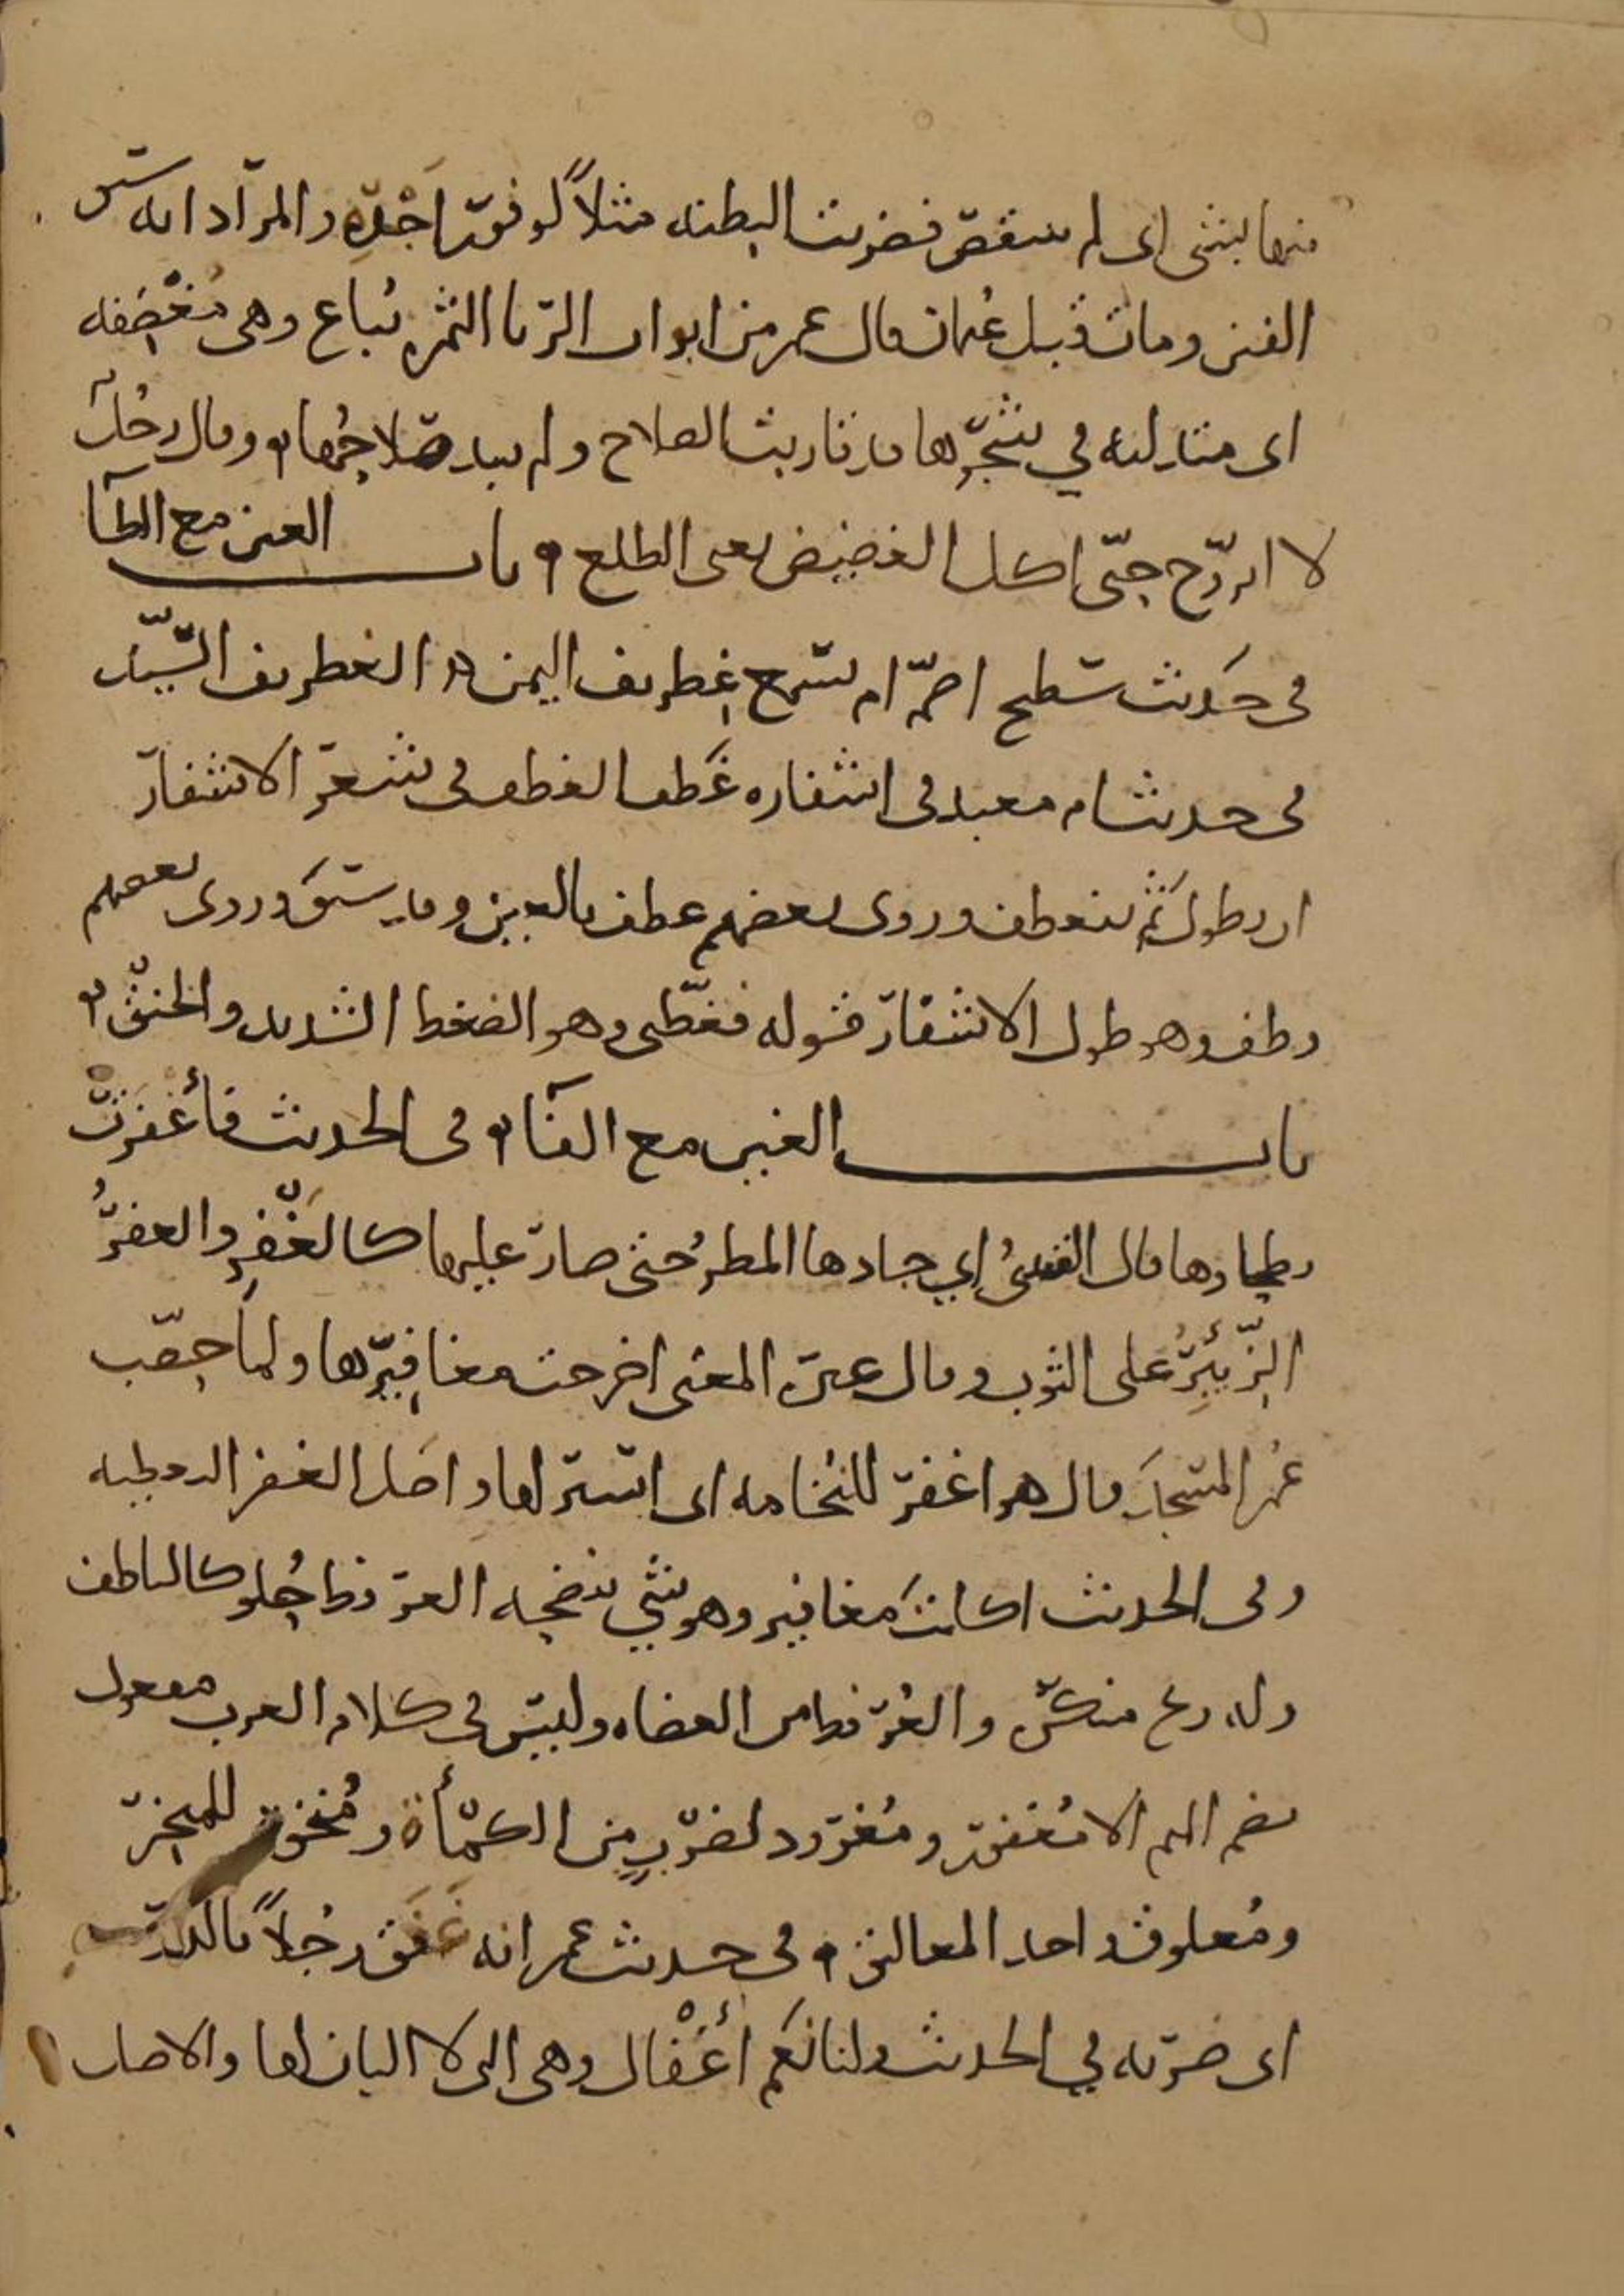 منها بشئ اى لم ينقص فضربت البطنه مثلاً لوفور اجره والمراد انه سبق
الفتن ومات قبل عثمان قال عمر من ابواب الربا الثمره تباع وهى مُغْضِفه
اى متدليه في شجرها قد قاربت الصلاح ولم يبد صلاحُها ه وقال رجُل
لا اتزوّج حتى اكل الغضيض يعنى الطلع ه باب الغين مع الطآ
فى حَديث سَطيح اصمّ ام يسمع غِطريف اليمن ه الغطريف السَّيّد
فى حديث ام معبد فى اشفاره غَطف الغطف فى شعر الاشفار
ان يطول ثم ينعطف وروى بعضهم عطف بالعين وقد سبق وروى بعضهم
وطف وهو طول الاشفار قوله فغطّنى وهو الضغط الشديد والخنق ه
باب الغين مع الفآ ه فى الحديث فأغْفَرَتْ
بطحاوها قال القتيبىُّ اي جادها المطر حتى صار عليها كالغَفْرِ والغفرُ
الزِّئبِرُ على الثوب وقال غيره المعنى اخرجت مغافِيرها ولما حصّب
عُمر المسجدَ قال هو اغفر للنُخامه اى استر لها واصَل الغفر التغطيه
وفى الحديث اكلتَ مغافير وهو شئ ينضحه العرفط حُلو كالناطف
وله ريح منكره والعُرفط من العضاه وليس فى كلام العرب مفعول
بضم الميم الا مُغفور ومُغرود لضَربٍ مِن الكمأة ومُنخور للمنخر
ومُعلوق واحد المعاليق ه فى حديث عمر انه غَفَق رجُلاً بالدرّه
اى ضربه في الحديث ولنا نَعَم أغْفال وهى التى لا البان لها والاصل